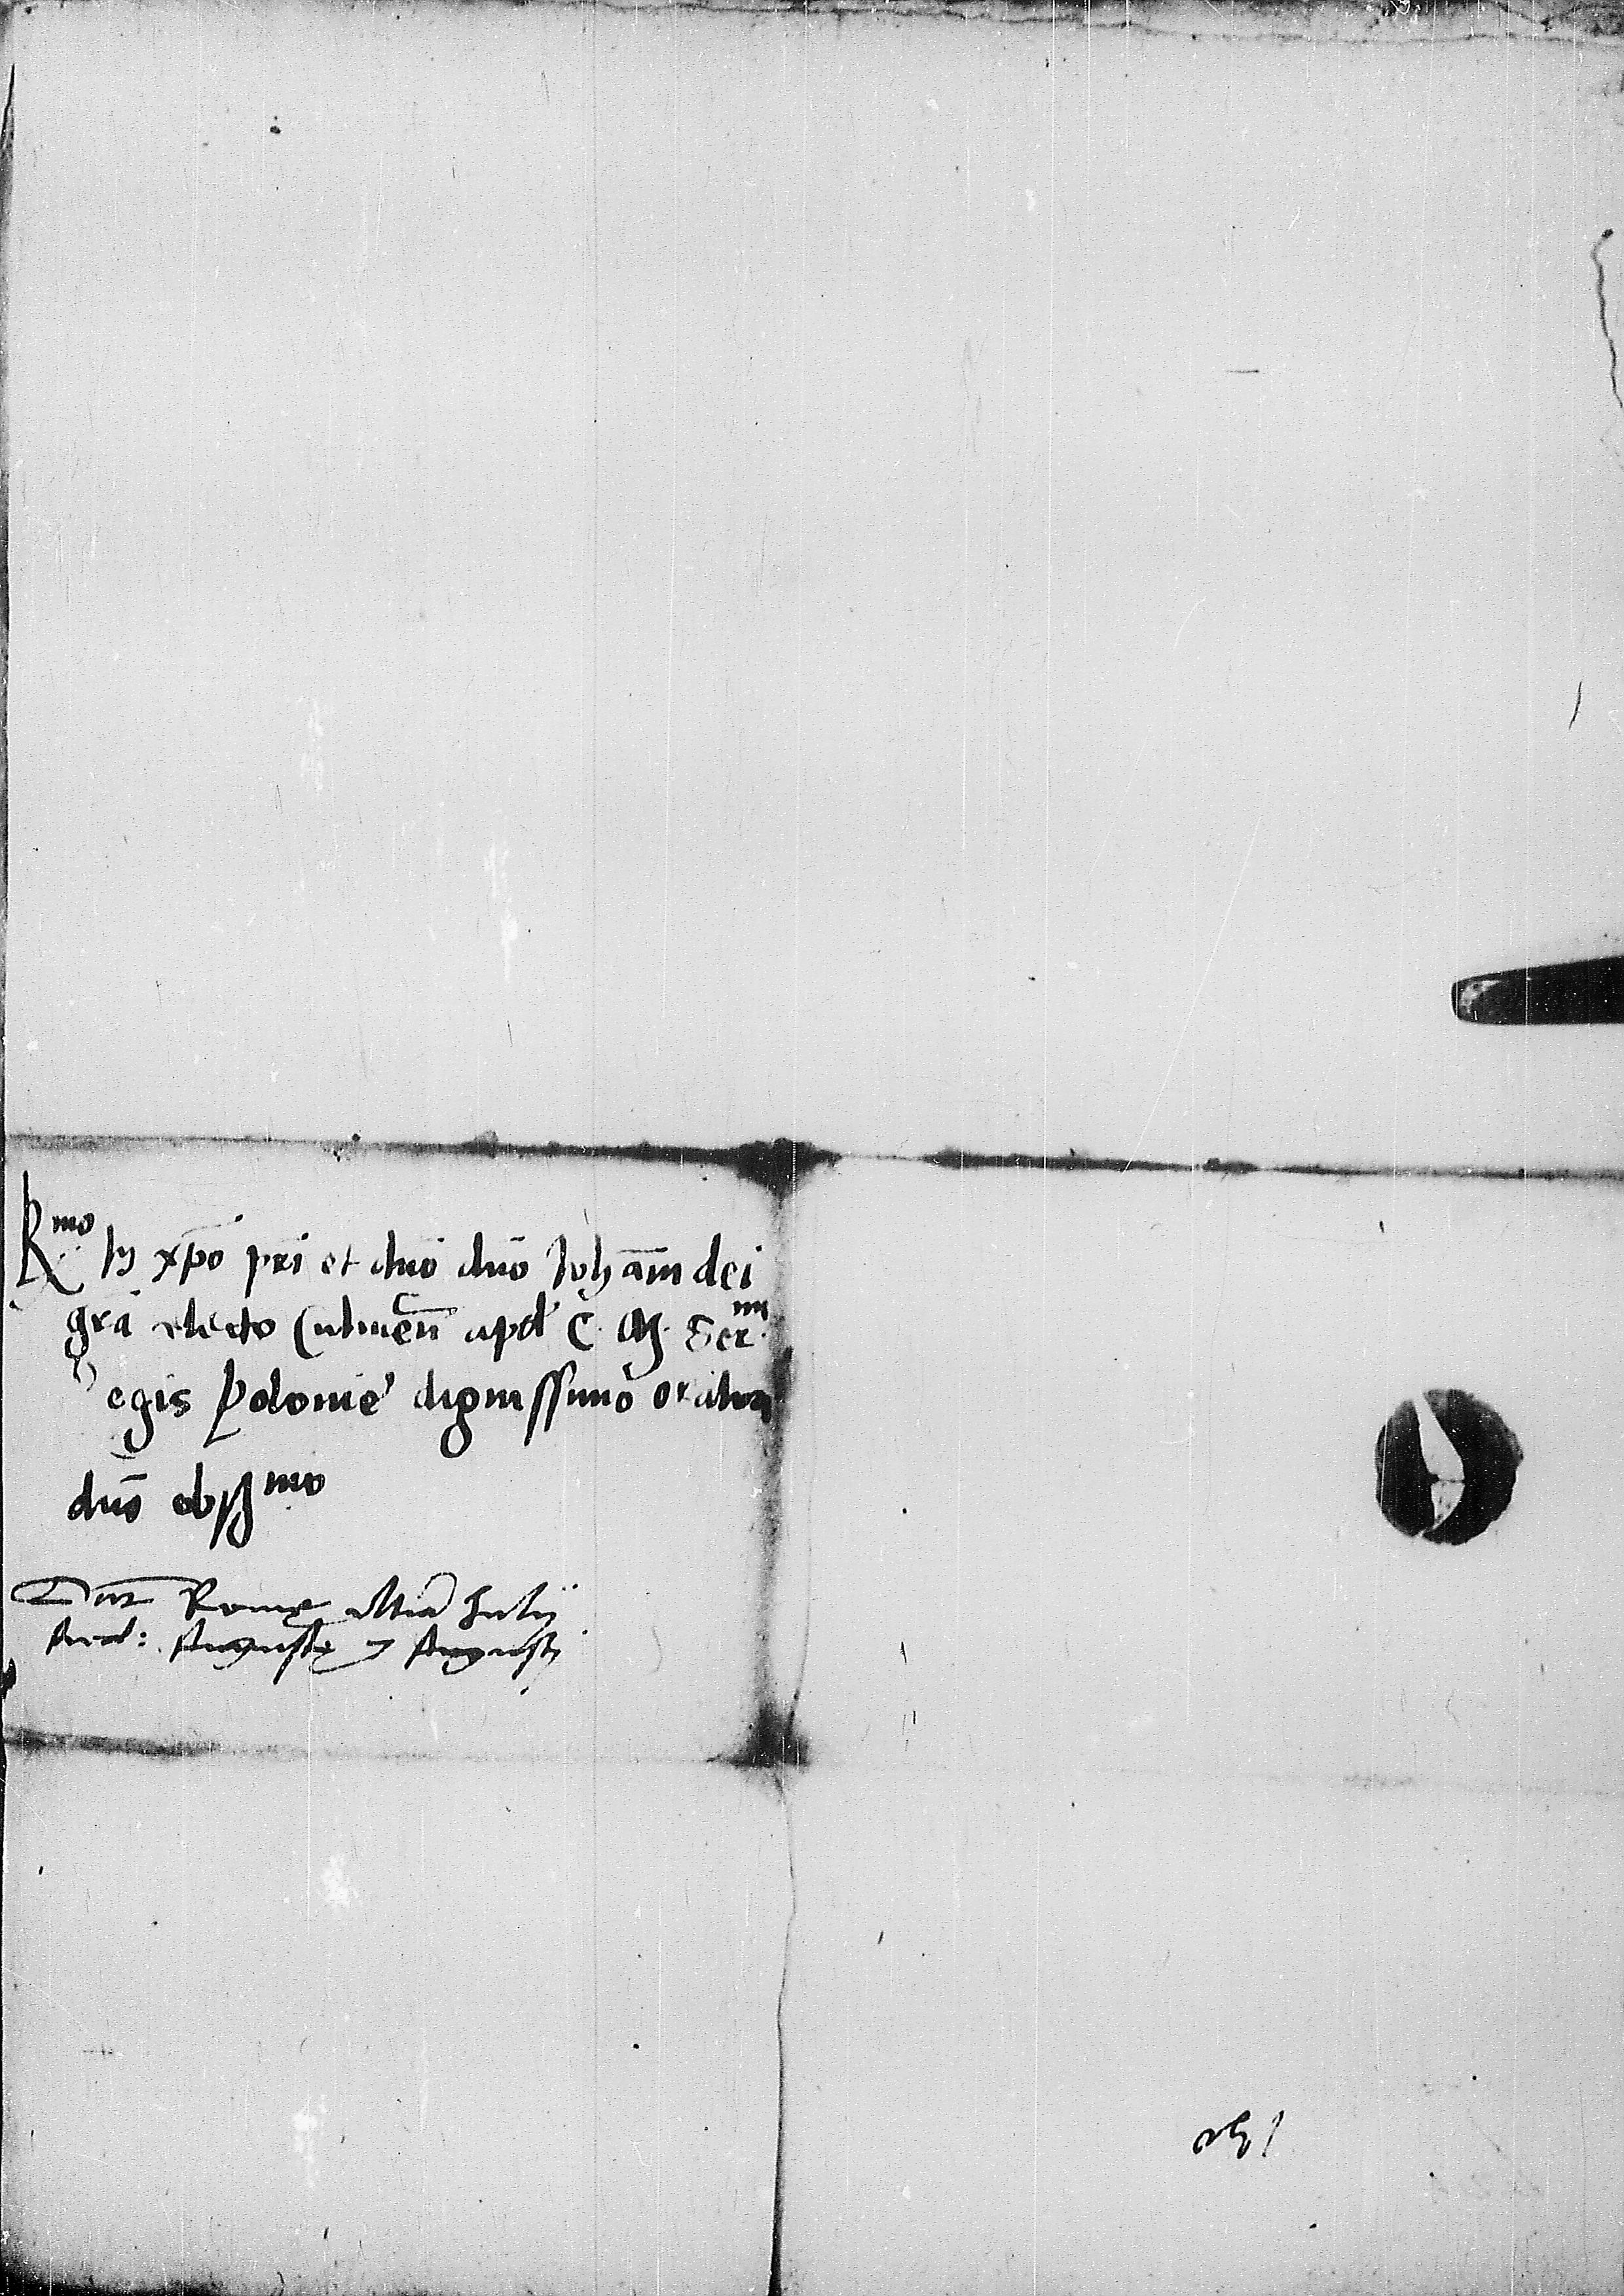 R^mo In xp̄o pr̄i et dn̄o dn̄o Ioħān̄i dei
gr̄a electo Culmen̄ apd' C. M. Ser^mi
Regis Polonie' dignissimo oratori
dn̄o obß^mo
Dat̄ Romę ultīa Julij
Au^d: Augustę 7 Augusti